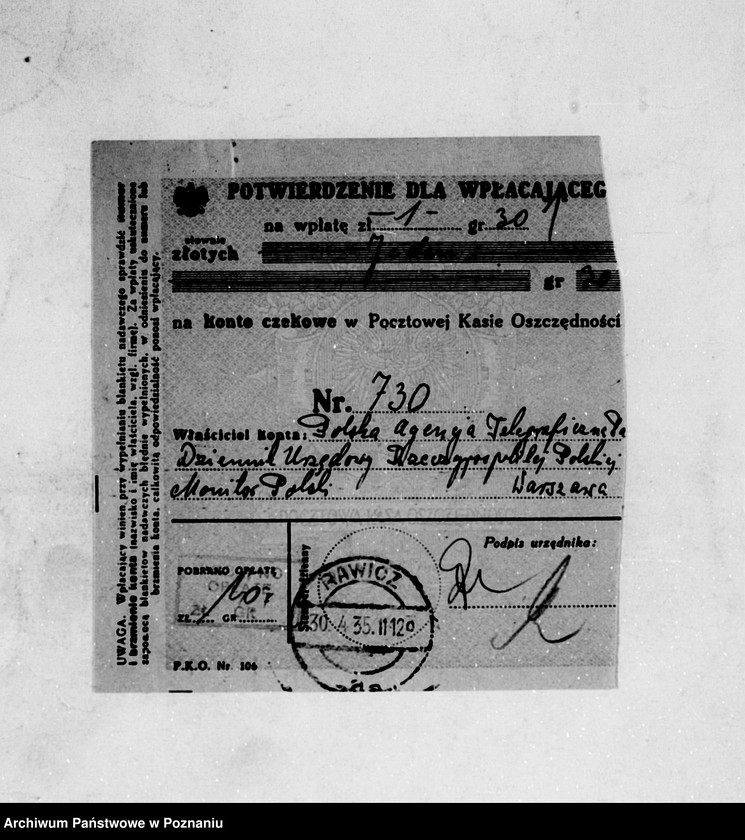 POTWIERDZENIE DLA WPŁACAJĄCEG
na wpłatę zł -1- gr 30
słownie
złotych Jeden
gr 30
na konto czekowe w Pocztowej Kasie Oszczędności
Nr. 730
Właściciel konta: Polska Agencja Telegraficzna Pa
Dziennik Urzędowy Rzeczypospolitej Polskiej
Monitor Polski Warszawa
Podpis urzędnika:
POBRANO OPŁATĘ
ZŁ GR
RAWICZ
30. 4.35.11-12
P.K.O. Nr. 106
UWAGA. Wpłacający winien przy wypełnianiu blankietu nadawczego sprawdzić numer
i brzmienie konta (nazwisko i imię właściciela, wzgl. firmę). Za wpłaty uskutecznione
zapomocą blankietów nadawczych błędnie wypełnionych, w odniesieniu do numeru lub
brzmienia konta, całkowitą odpowiedzialność ponosi wpłacający.
Archiwum Państwowe w Poznaniu